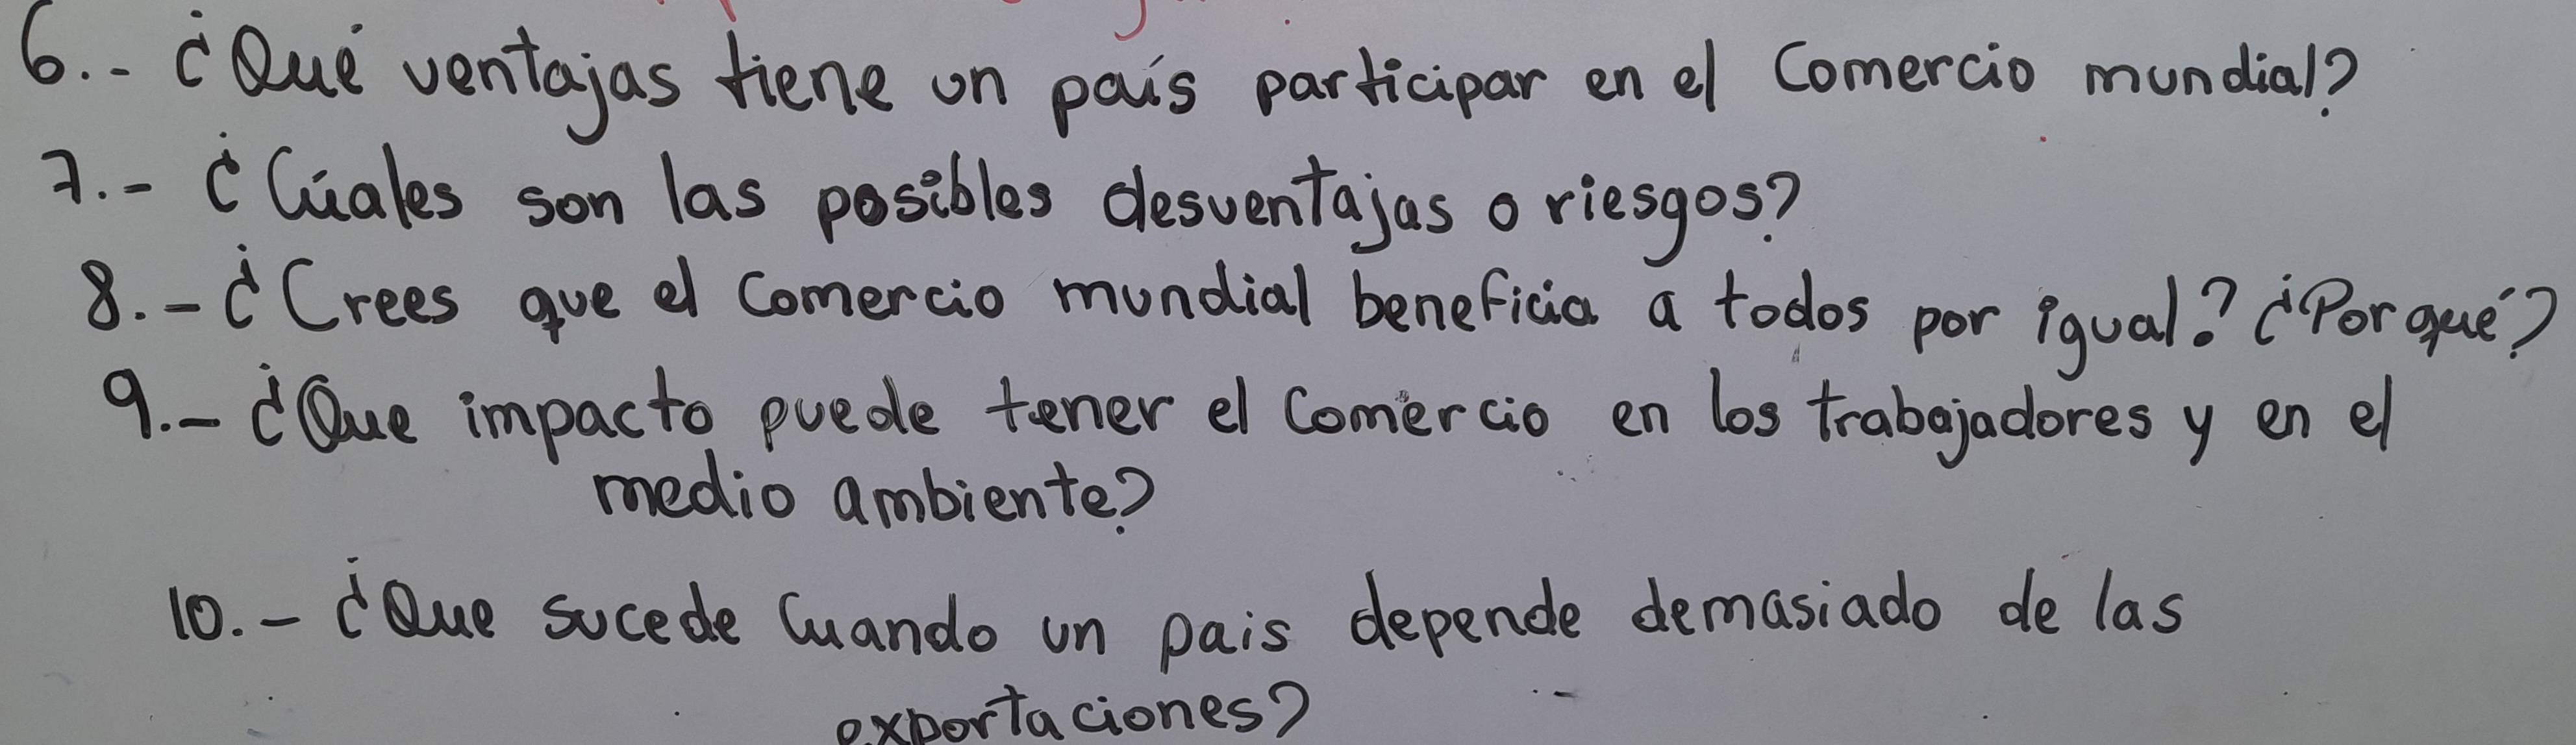 6.- ¿Qué ventajas tiene un país participar en el Comercio mundial?
7.- ¿Cúales son las posibles desventajas o riesgos?
8.- ¿Crees que el Comercio mundial beneficia a todos por igual? ¿Por qué?
9.- ¿Que impacto puede tener el Comercio en los trabajadores y en el
medio ambiente?
10.- ¿Que sucede Cuando un pais depende demasiado de las
exportaciones?